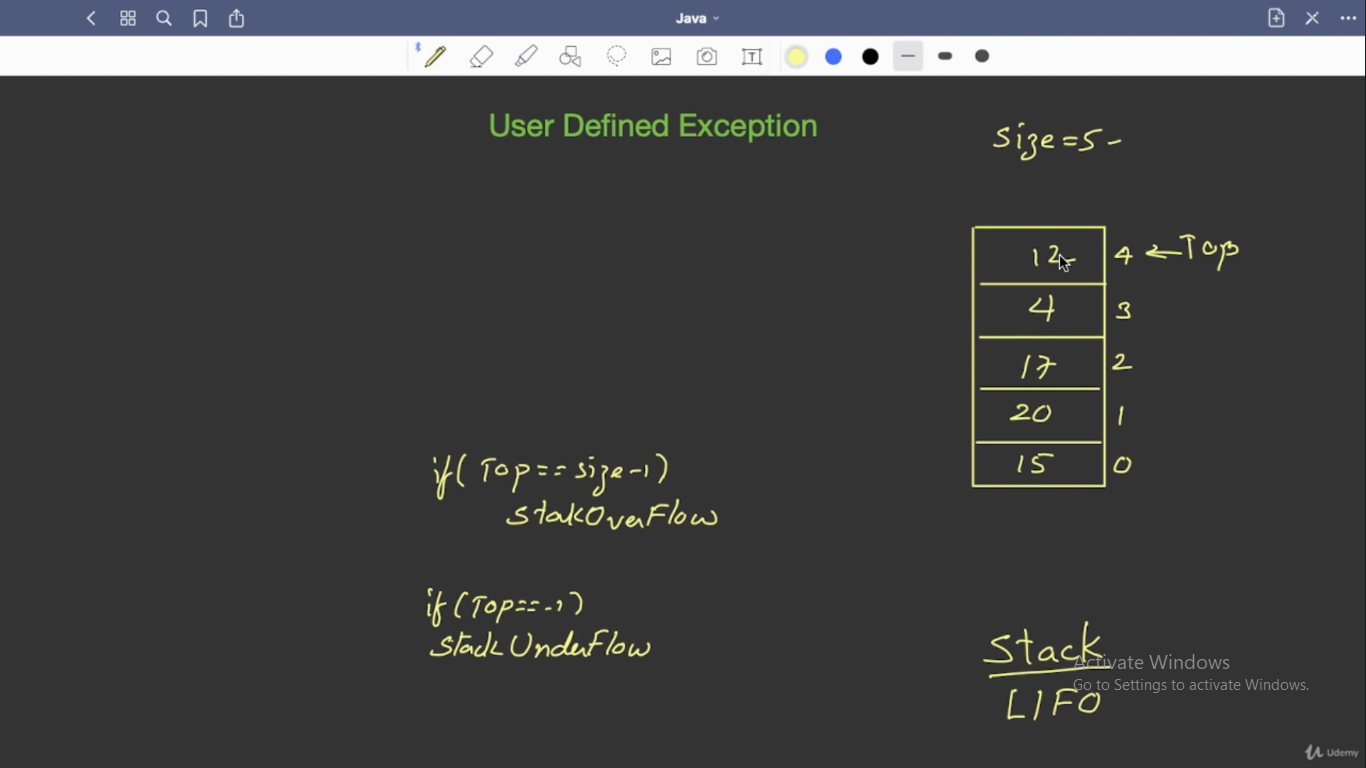 Java
T
User Defined Exception
Size=5-
12 4 ← Top
4 3
17 2
20 1
15 0
if( Top==size-1)
StakOverFlow
if(Top==-1)
Stack UnderFlow
Stack
LIFO
Activate Windows
Go to Settings to activate Windows.
Udemy